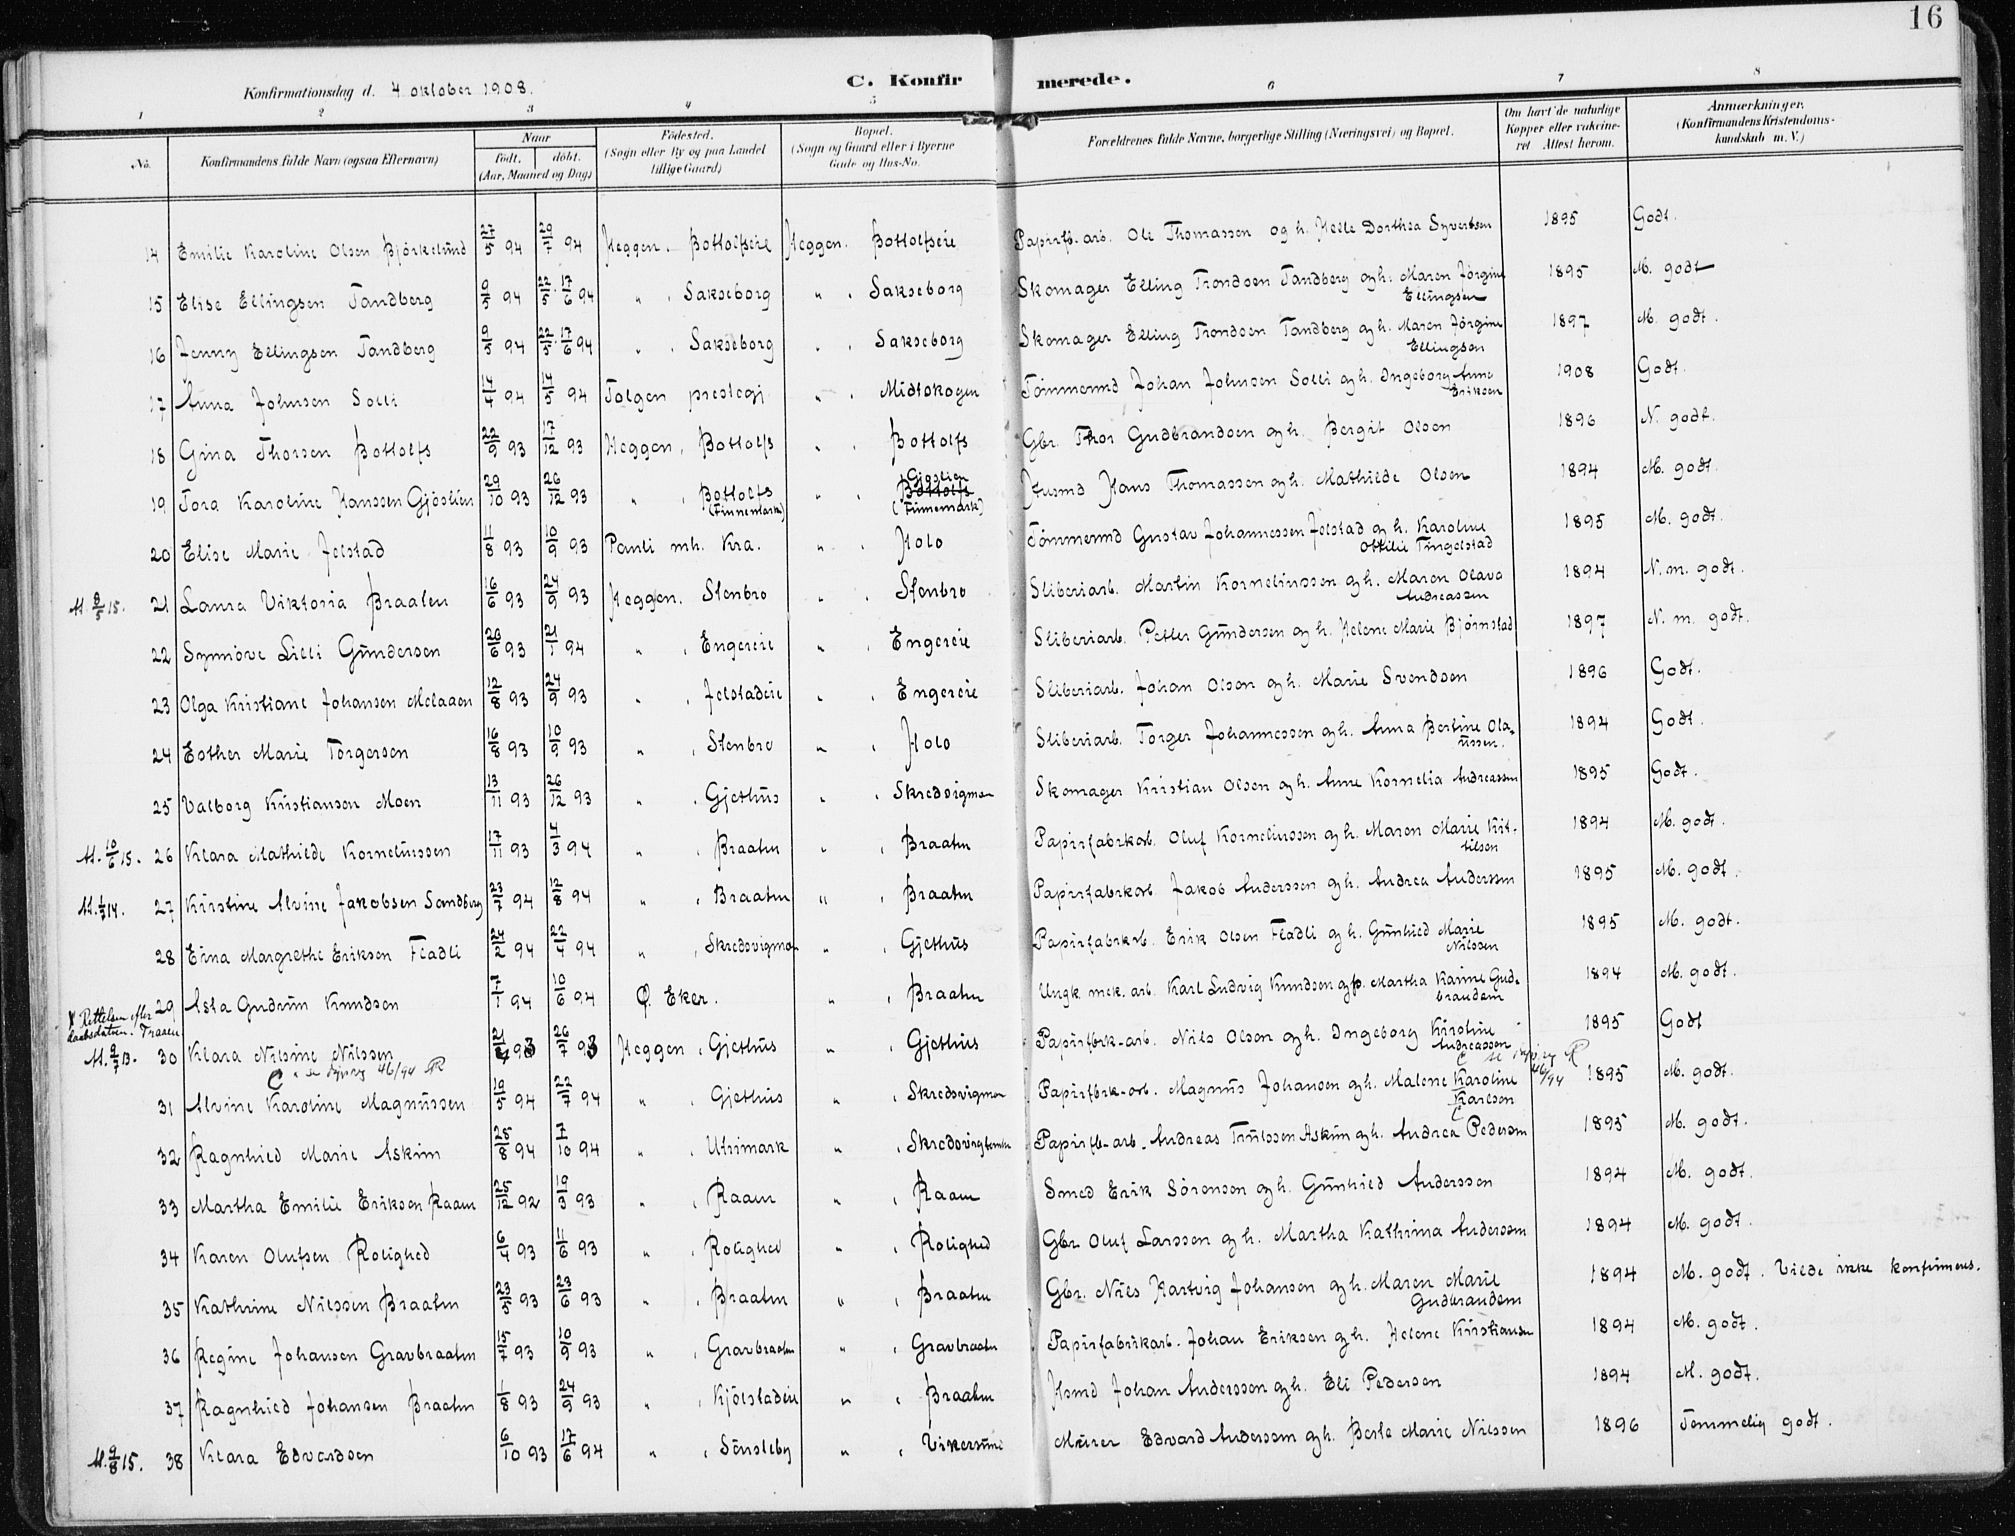 16
C. Konfirmerede.
Konfirmationsdag d. 4 oktober 1908.
1 2 3 4 5 6 7 8
No. Konfirmandens fulde Navn (ogsaa Efternavn) Naar født, døbt. (Aar, Maaned og Dag) Födested. (Sogn eller By og paa Landet tillige Gaard) Bopæl. (Sogn og Gaard eller i Byerne Gade og Hus-No. Forældrenes fulde Navne, borgerlige Stilling (Næringsvei) og Bopæl. Om havt de naturlige Kopper eller vakcineret Attest herom. Anmærkninger. (Konfirmandens Kristendomskundskab m. V.)
14 Emilie Karoline Olsen Bjørkelund 27/5 94 29/7 94 Heggen. Bottolfseie Heggen. Bottolfseie Papirfb.arb. Ole Thomassen og h. Helle Dorthea Syvertsen 1895 Godt.
15 Elise Ellingsen Tandberg 9/5 94 22/5 . 17/6 94 " . Sakseborg " . Sakseborg Skomager Elling Trondsen Tandberg og h. Maren Jørgine Ellingsen 1895 M. godt
16 Jenny Ellingsen Tandberg 9/5 94 22/5 . 17/6 94 " . Sakseborg " . Sakseborg Skomager Elling Trondsen Tandberg og h. Maren Jørgine Ellingsen 1897 M. godt.
17 Anna Johnsen Solli 14/4 94 14/5 94 Tolgen prestegj. " . Midtskogen Tømmermd Johan Johnsen Solli og h. Ingeborg Anne Eriksen 1908 Godt.
18 Gina Thorsen Bottolfs 22/9 93 17/12 93 Heggen. Bottolfs " . Bottolfs Gbr. Thor Gudbrandsen og h. Bergit Olsen 1896 N. godt.
19 Tora Karoline Hanssen Gjøslien 29/10 93 26/12 93 " . Bottolfs (Finnemark) " . Gjøslien Bottolfs (Finnemark) Husmd Hans Thomassen og h. Mathilde Olsen 1894 M. godt.
20 Elise Marie Jelstad 11/8 93 10/9 93 Pauli mh. Kra. " . Holo Tømmermd Gustav Johannessen Jelstad og h. Karoline Ottilie Tingelstad 1895 M. godt.
M. 9/5 15. 21 Laura Viktoria Braaten 16/6 93 24/9 93 Heggen. Stenbro " . Stenbro Sliberiarb. Martin Korneliussen og h. Maren Olava Andreassen 1894 N. m. godt.
22 Synnøve Lilli Gundersen 26/6 93 21/1 94 " . Engereie " . Engereie Sliberiarb. Petter Gundersen og h. Helene Marie Bjørnstad 1897 N. m. godt.
23 Olga Kristiane Johansen Melaaen 12/8 93 24/9 93 " . Jelstadeie " . Engereie Sliberiarb. Johan Olsen og h. Marie Svendsen 1896 Godt.
24 Esther Marie Torgersen 16/8 93 10/9 93 " . Stenbro " . Holo Sliberiarb. Torger Johannessen og h. Anna Bertine Olaussen. 1894 Godt.
25 Valborg Kristiansen Moen 13/11 93 26/12 93 " . Gjethus " . Skredsvigmoen Skomager Kristian Olsen og h. Anne Kornelia Andreassen 1895 Godt.
M. 10/6 15. 26 Klara Mathilde Korneliussen 17/11 93 4/3 94 " . Braaten " . Braaten Papirfabrkarb. Oluf Korneliussen og h. Maren Marie Kittilsen 1894 M. godt.
M. 14. 27 Kirstine Alvine Jakobsen Sandberg 23/7 94 12/8 94 " . Braaten " . Braaten Papirfabrkarb. Jakob Anderssen og h. Andrea Anderssen 1895 M. godt.
28 Eina Margrethe Eriksen Fladli 24/2 94 22/4 94 " . Skredsvigmoen " . Gjethus Papirfabrkarb. Erik Olsen Fladli og h. Gunhild Marie Nilssen 1895 M. godt.
29 Asta Gudrun Knudsen 7/1 94 10/6 94 Ø. Eker. " . Braaten Ungk. mek. arb. Karl Ludvig Knudsen og p. Martha Karine Gudbrandsen 1894 M. godt.
X Rettelsen efter daabsdatoen. Traaen
M. 9/7 13. 30 Klara Nilsine Nilssen 93 26/7 93 Heggen. Gjethus " . Gjethus Papirfbrk-arb. Nils Olsen og h. Ingeborg Kirstine Andreassen 1895 Godt
46/94
31 Alvine Karoline Magnussen 10/5 94 22/7 94 " . Gjethus " . Skredsvigmoen Papirfbrk-arb. Magnus Johansen og h. Malene Karoline Karlsen 46/94 1895 M. godt.
32 Ragnhild Marie Askim 25/8 94 7/10 94 " . Utrimark " . Papirfb-arb. Andreas Trulssen Askim og h. Andrea Pedersen 1895 M. godt.
33 Martha Emilie Eriksen Raaen 25/12 92 19/3 93 " . Raaen " . Raaen Smed Erik Sørensen og h. Gunhild Anderssen 1894 M. godt.
34 Karen Olufsen Rolighed 6/4 93 11/6 93 " . Rolighed " . Rolighed Gbr. Oluf Larssen og h. Martha Kathrina Anderssen 1894 M. godt.
35 Kathrine Nilssen Braaten 23/5 93 23/6 93 " . Braaten " . Braaten Gbr. Nils Hartvig Johansen og h. Maren Marie Gudbrandsen 1894 M. godt. Vilde ikke konfirmeres.
36 Regine Johansen Gravbraaten 15/7 93 10/9 93 " . Gravbraaten " . Gravbraaten Papirfabrikarb. Johan Eriksen og h. Helene Kristiansen 1894 M. godt.
37 Ragnhild Johansen Braaten 1/8 93 24/9 93 " . Kjølstadeie " . Braaten Hsmd Johan Anderssen og h. Eli Pedersen 1894 M. godt.
M. 9/8 15. 38 Klara Edvardsen 6/10 93 17/6 94 " . Sønsteby " . Vikersund Murer Edvard Anderssen og h. Berte Marie Nilssen 1896 Temmelig godt.